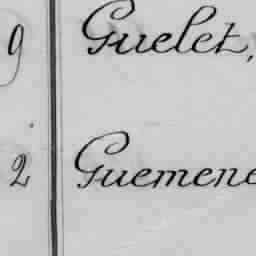 9 Guelet,
2 Guemene